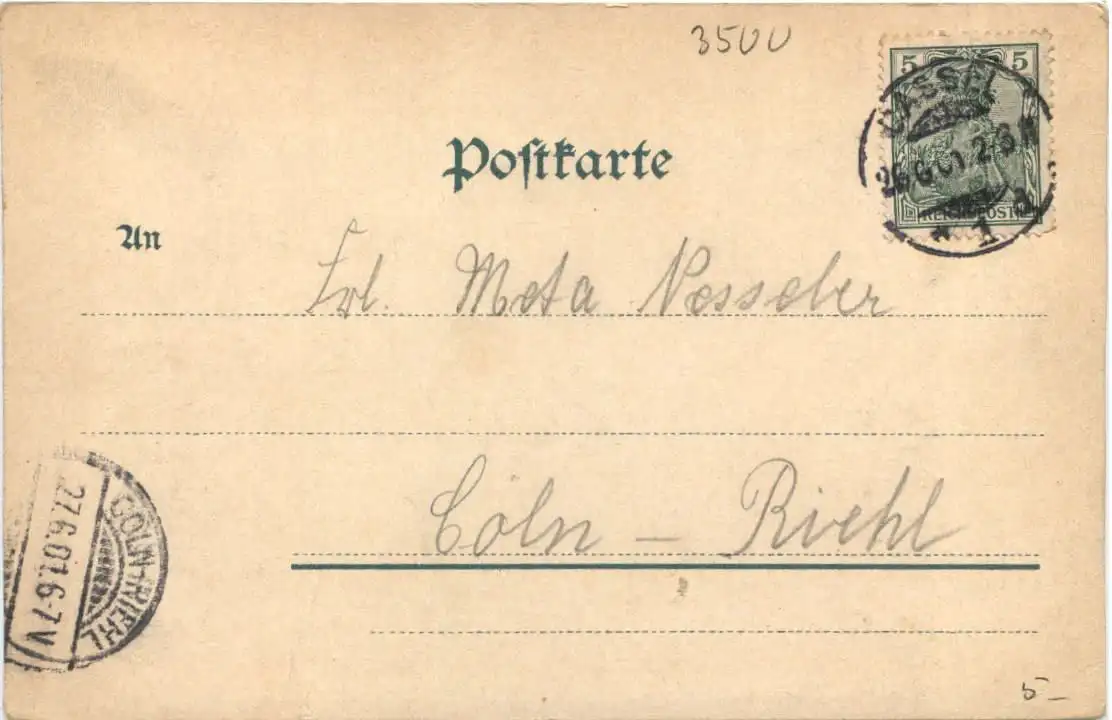 3500
5 5
CASSEL
26.6.01. 2-3 N
REICHSPOST
* 1 a
Postkarte
An
Frl. Meta Nesseler
Cöln - Riehl
CÖLN-RIEHL
27.6.01.6-7V
5-